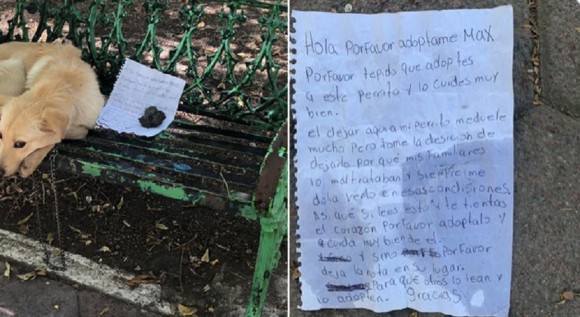 Hola Porfavor adoptame Max
Porfavor tepido que adoptes
a este perrito y lo cuides muy
bien.
el dejar aqui a mi perrito meduele
mucho Pero tome la desicion de
dejarlo Por qué mis familiares
lo maltrataban y siempre me
dolia verlo en esas condisiones
Asi que si lees esto y te tientas
el corazon Porfavor adoptalo y
cuida muy bien de el.
y sino Porfavor
deja la nota en su lugar.
Para que otros lo lean y
lo adopten. Gracias